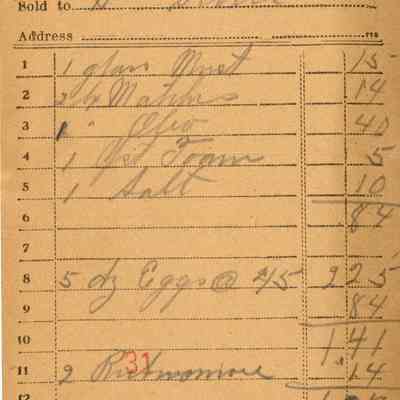 Sold to
Address
1 1 glass Must 15
2 2 bx Matches 14
3 1 " Oleo 40
4 1 Foam 5
5 1 Salt 10
6 84
7
8 5 dz Eggs @ 45 2 25
9 84
10 1 41
11 2 14
31
12